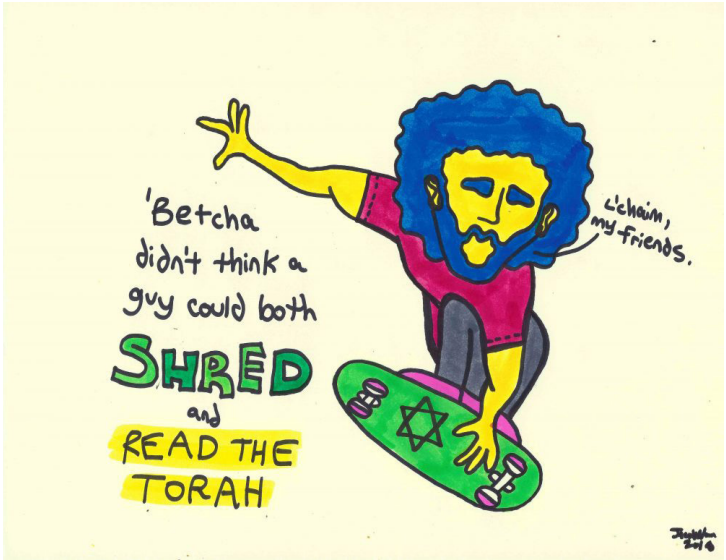 'Betcha
didn't think a
guy could both
SHRED
and
READ THE
TORAH
L'chaim,
my friends.